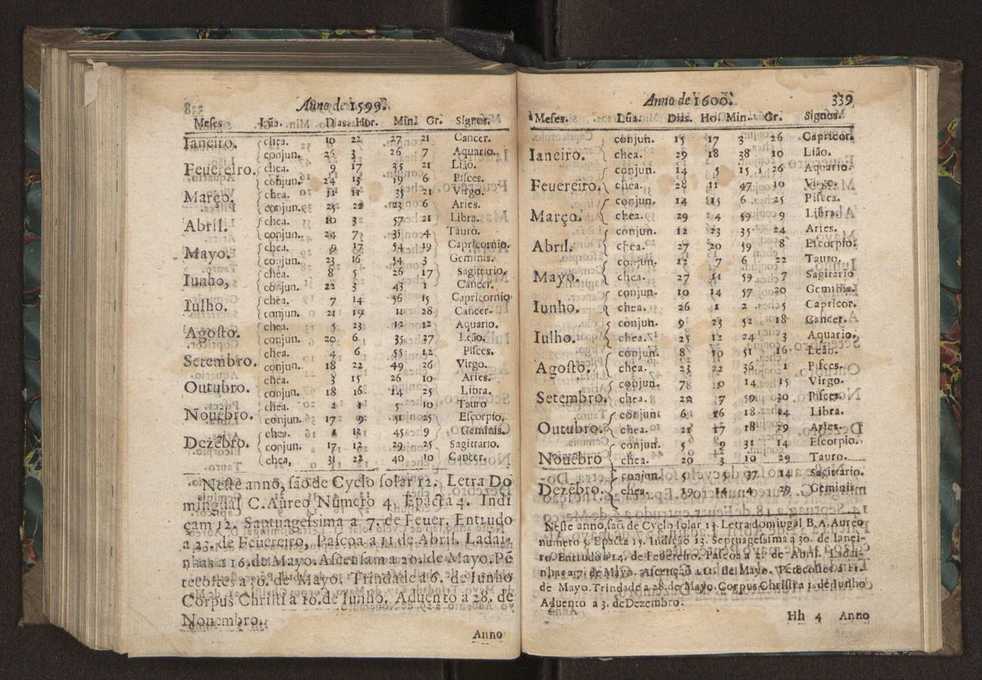 Anno de 1599.
Meses. Lũa. Dias. Hor. Min. Gr. Signos.
Ianeiro. chea. 10 22 27 21 Cancer.
conjun. 26 3 26 7 Aquario.
Feuereiro. chea. 9 17 25 21 Lião.
conjun. 24 15 19 6 Pisces.
Março. chea. 11 11 35 21 Virgo.
conjun. 6 Aries.
Abril. chea. 10 3 57 21 Libra.
conjun. 24 7 35 4 Tauro.
Mayo. chea. 9 17 54 19 Capricornio.
conjun. 23 16 54 3 Geminis.
Iunho, chea. 8 5 26 17 Sagittario.
conjun. 22 3 43 1 Cancer.
Iulho. chea. 7 14 56 15 Capricornio
conjun. 21 19 28 Cancer.
Agosto. chea. 5 23 12 12 Aquario.
conjun. 20 6 35 27 Leão.
Setembro. chea. 4 6 55 12 Pisces.
conjun. 18 22 49 26 Virgo.
Outubro. chea. 3 15 26 10 Aries.
conjun. 18 16 14 25 Libra.
Nouẽbro. chea. 2 5 10 Tauro
conjun. 17 9 51 25 Escorpio.
Dezẽbro. chea. 1 12 45 9 Geminis.
conjun. 17 12 29 25 Sagittario.
chea, 31 22 40 10 Cancer.
Neste anno, são de Cyclo solar 12. Letra Do
mingual C. Aureo Numero 4. Epacta 4. Indi
çam 12. Santuagesima a 7. de Feuer. Entrudo
a 23. de Feuereiro, Pascoa a 11 de Abril. Ladai-
nhas a 16. de Mayo. Ascensam a 20. de Mayo. Pẽ
tecostes a 30. de Mayo. Trindade a 6. de Iunho
Corpus Christi a 10. de Iunho. Aduento a 28. de
Nouembro.
Anno
Anno de 1600. 339
Meses. Lũa. Dias. Ho. Min. Gr. Signos.
conjun. 15 17 3 26 Capricor.
Ianeiro. chea. 29 18 38 10 Lião.
conjun. 14 5 15 26 Aquario.
Feuereiro. chea. 28 11 47 10 Virgo.
conjun. 14 15 6 25 Pisces.
Março. chea. 29 4 59 9 Libra.
conjun. 12 23 35 24 Aries.
Abril. chea. 27 20 59 8 Escorpio.
conjun. 12 7 6 22 Tauro.
Mayo. chea. 27 11 59 7 Sagitario
conjun. 10 14 57 20 Geminis.
Iunho. chea. 26 1 2 5 Capricor.
conjun. 9 23 52 18 Cancer.
Iulho. chea. 25 12 24 3 Aquario.
conjun. 8 10 51 16 Leão.
Agosto. chea. 23 22 36 1 Pisces.
conjun. 78 0 14 15 Virgo.
Setembro. chea. 22 7 59 30 Pisces.
conjun. 6 16 18 14 Libra.
Outubro. chea. 21 17 18 29 Aries.
conjun. 5 9 31 14 Escorpio.
Nouẽbro chea. 20 3 10 29 Tauro.
conjun. 5 5 37 14 Sagitario.
Dezẽbro. chea. 19 14 4 29 Geminis.
Neste anno, são de Cyclo solar 13. Letra domingal B A. Aureo
numero 5. Epacta 15. Indição 13. Septuagesima a 30. de Ianei-
ro. Entrudo a 14. de Feuereiro. Pascoa a 2. de Abril. Ladai-
nhas a 7. de Mayo. Ascenção a 11. de Mayo. Pẽtecostes a 21.
de Mayo. Trindade a 28. de Mayo. Corpus Christi a 1. de Iunho
Aduento a 3. de Dezembro.
Hh 4 Anno